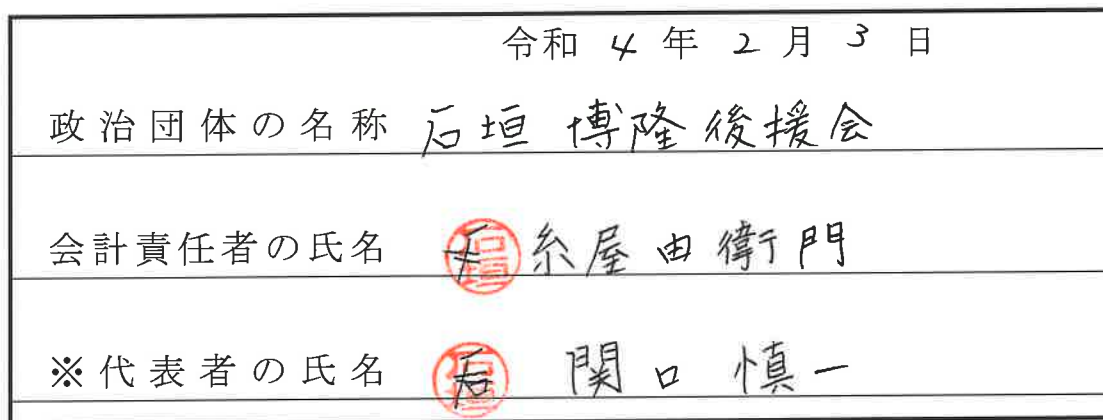 令和 4 年 2 月 3 日
政治団体の名称 石垣 博隆後援会
会計責任者の氏名 石垣 糸屋由衛門
※代表者の氏名 石垣 関口 慎一